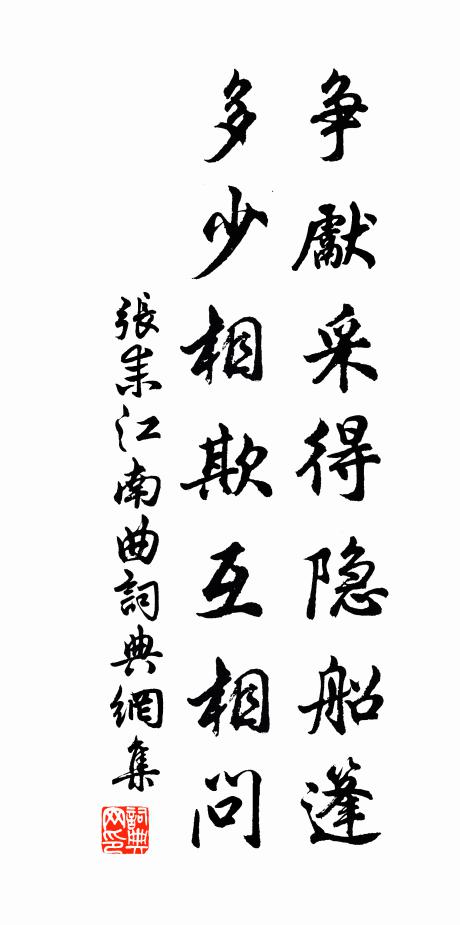 争獻采得隐船篷
多少相欺互相問
張耒江南曲詞典網集
詞典
网印